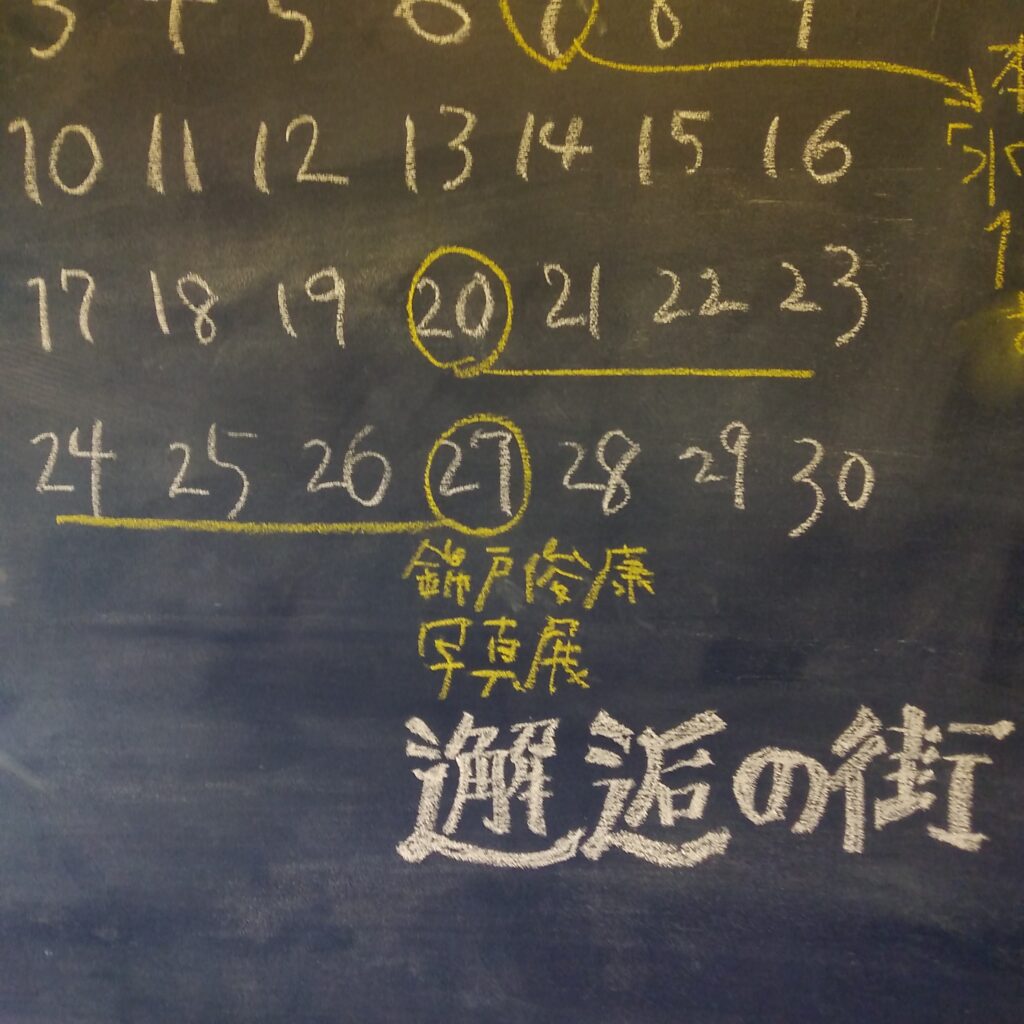 3 4 5 6 7 8 9
10 11 12 13 14 15 16
17 18 19 20 21 22 23
24 25 26 27 28 29 30
錦戸俊康
写真展
邂逅の街